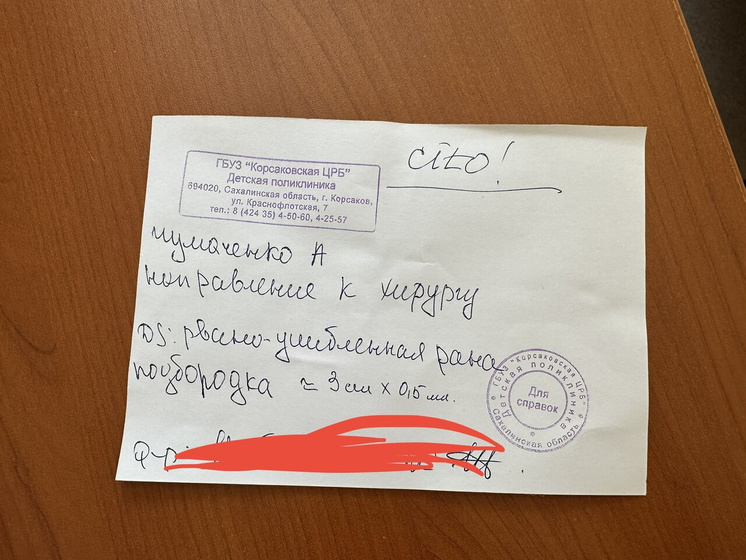 cito!
ГБУЗ "Корсаковская ЦРБ"
Детская поликлиника
694020, Сахалинская область, г. Корсаков,
ул. Краснофлотская, 7
тел.: 8 (424 35) 4-50-60, 4-25-57
Чумаченко А
направление к хирургу
DS: рвано-ушибленная рана
подбородка ≈ 3 см х 0,5 мм.
ГБУЗ "Корсаковская ЦРБ"
Сахалинская область
Детская поликлиника
Для
справок